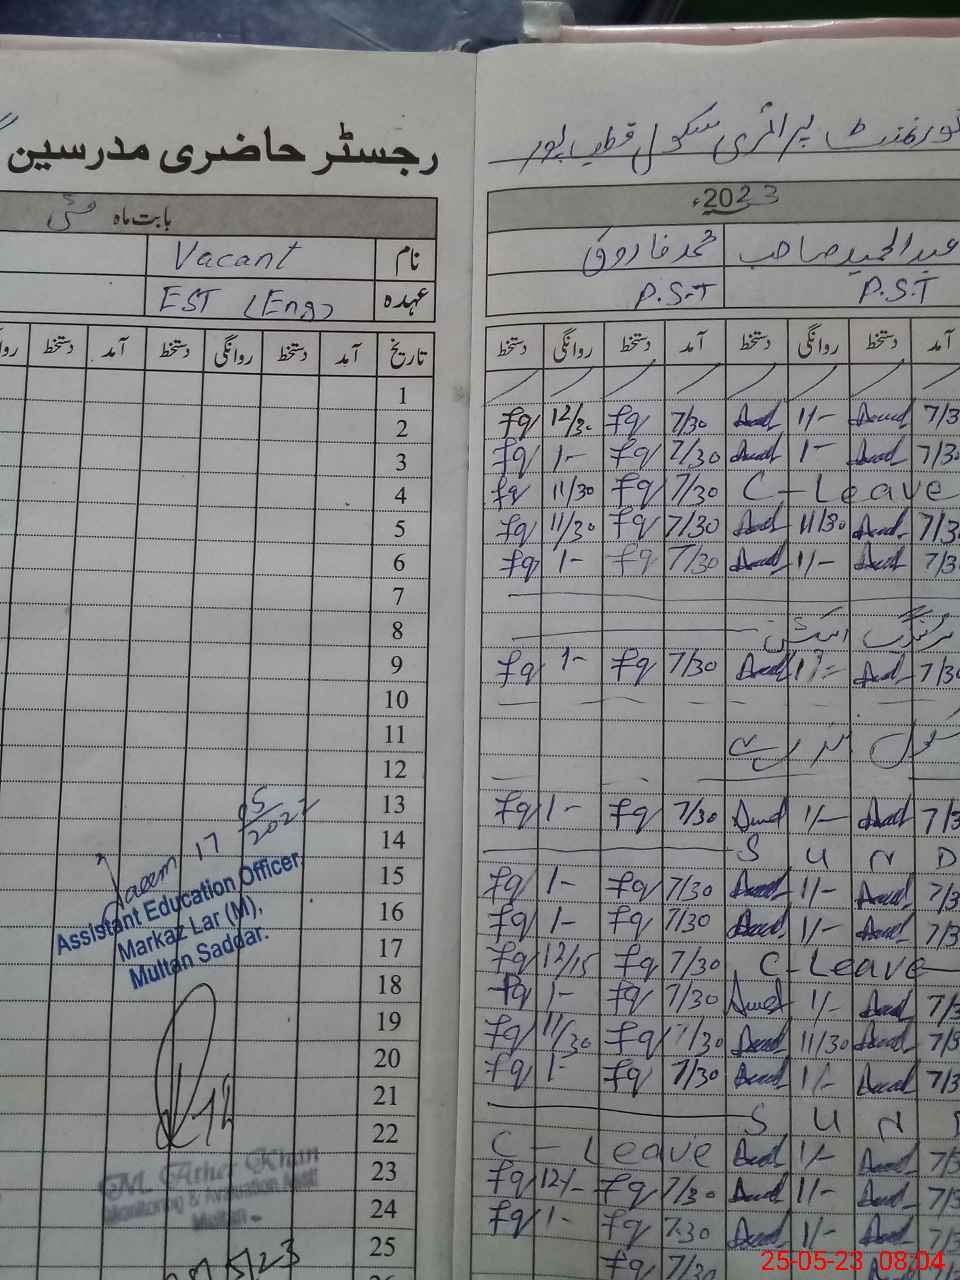 رجسٹر حاضری مدرسین
گورنمنٹ پرائمری سکول قطب پور
بابت ماہ مئی
2023ء
نام Vacant
عہدہ EST (Eng)
محمد فاروق عبدالحمید صاحب
P.S.T P.S.T
تاریخ آمد دستخط روانگی دستخط آمد دستخط
آمد دستخط روانگی دستخط آمد دستخط روانگی دستخط
1
2 fq 12/30 fq 7/30 1/- 7/30
3 fq 1- fq 7/30 1- 7/30
4 fq 11/30 fq 7/30 C-Leave
5 fq 11/30 fq 7/30 11/30 7/30
6 fq 1- fq 7/30 1/- 7/30
7
8
9 fq 1- fq 7/30 7/30
10
11
12
13 fq 1- fq 7/30 1/- 7/3
14 S U N D
15 fq 1- fq 7/30 1/- 7/3
16 fq 1- fq 7/30 1/- 7/3
17 fq 12/15 fq 7/30 C-Leave
18 fq 1- fq 7/30 1/- 7/3
19 fq 11/30 fq 7/30 11/30 7/3
20 fq 1- fq 7/30 1/- 7/3
21 S U N
22 C-Leave 1/- 7/3
23 fq 12/- fq 7/30 1/- 7/3
24 fq 1- fq 7.30 1/- 7/3
25 fq 7/30
17
Assistant Education Officer
Markaz Lar (M),
Multan Saddar.
M. Ather Khan
Monitoring & Evaluation Asstt
Multan
25-05-23 08:04